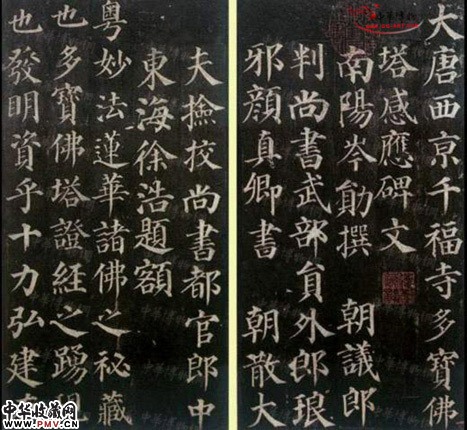 大唐西京千福寺多寶佛
塔感應碑文
南陽岑勛撰 朝議郎
判尚書武部員外郎琅
邪顏真卿書 朝散大
夫撿挍尚書都官郎中
東海徐浩題額
粵妙法蓮華諸佛之祕藏
也多寶佛塔證經之踴現
也發明資乎十力弘建
中华收藏网
www.PMV.cn